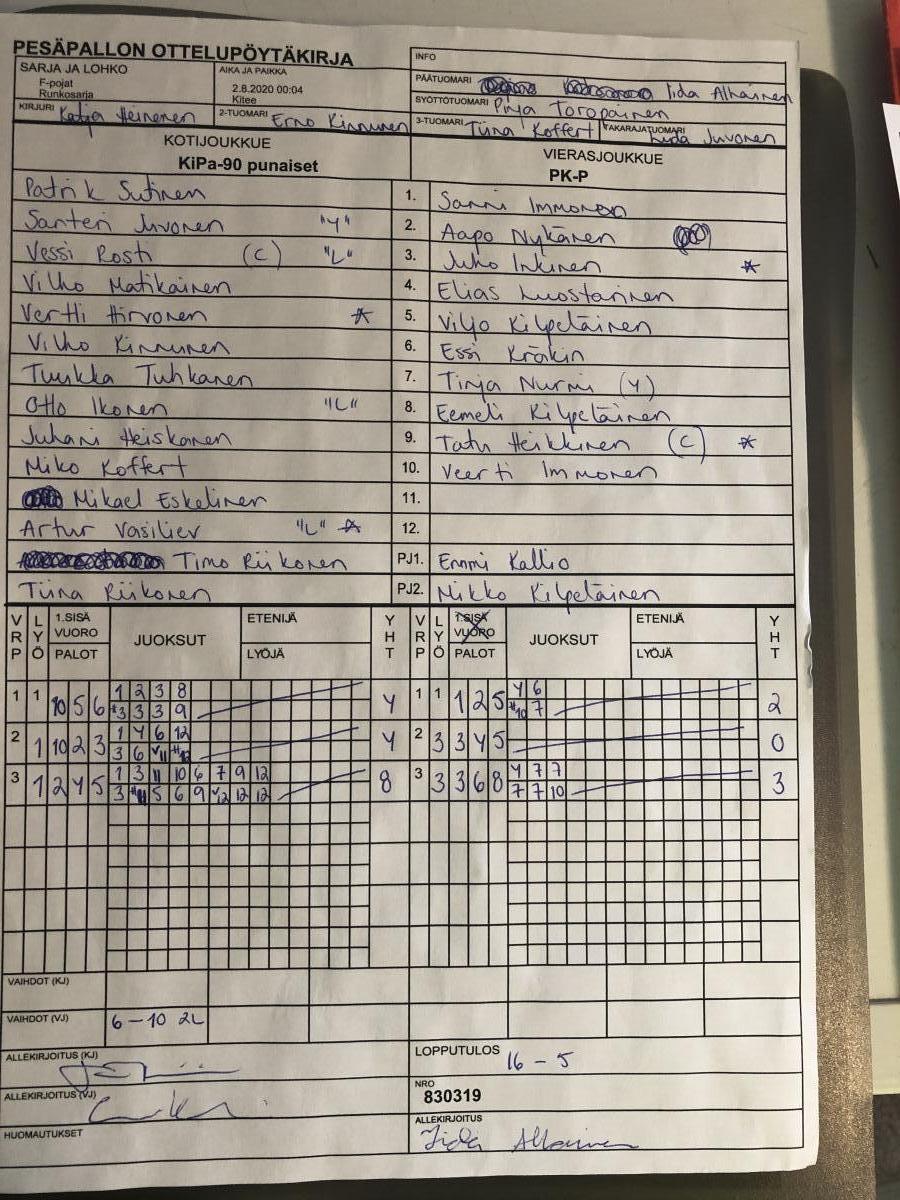 PESÄPALLON OTTELUPÖYTÄKIRJA
SARJA JA LOHKO
F-pojat
Runkosarja
AIKA JA PAIKKA
2.8.2020 00:04
Kitee
INFO
PÄÄTUOMARI Iida Alhainen
SYÖTTÖTUOMARI Pinja Toropainen
KIRJURI Katja Heinonen
2-TUOMARI Erno Kinnunen
3-TUOMARI Tiina Koffert
TAKARAJATUOMARI Juvonen
KOTIJOUKKUE
KiPa-90 punaiset
VIERASJOUKKUE
PK-P
Patrik Sutinen 1. Sanni Immonen
Santeri Juvonen "Y" 2. Aapo Nykänen
Vessi Rosti (C) "L" 3. Juho Inkinen *
Vilho Matikainen 4. Elias Luostarinen
Vertti Hirvonen * 5. Viljo Kilpeläinen
Vilho Kinnunen 6. Essi Kräkin
Tuukka Tuhkanen 7. Tinja Nurmi (Y)
Otto Ikonen "L" 8. Eemeli Kilpeläinen
Juhani Heiskanen 9. Tatu Heikkinen (C) *
Miko Koffert 10. Veerti Immonen
Mikael Eskelinen 11.
Artur Vasiliev "L" * 12.
Timo Riikonen PJ1. Emmi Kallio
Tiina Riikonen PJ2. Mikko Kilpeläinen
VRP LYÖ 1.SISÄ VUORO PALOT JUOKSUT ETENIJÄ LYÖJÄ YHT VRP LYÖ 1.SISÄ VUORO PALOT JUOKSUT ETENIJÄ LYÖJÄ YHT
1 1 10 5 6 1 2 3 8 4 1 1 1 2 5 4 6 2
*3 3 3 9 *10 7
2 1 10 2 3 1 4 6 12 4 2 3 3 4 5 0
3 6 *12
3 1 2 4 5 1 3 11 10 6 7 9 12 8 3 3 3 6 8 4 7 7 3
3 *11 5 6 9 12 12 12 7 7 10
VAIHDOT (KJ)
VAIHDOT (VJ) 6-10 2L
ALLEKIRJOITUS (KJ)
LOPPUTULOS 16 - 5
ALLEKIRJOITUS (VJ)
NRO
830319
HUOMAUTUKSET
ALLEKIRJOITUS
Iida Alhainen